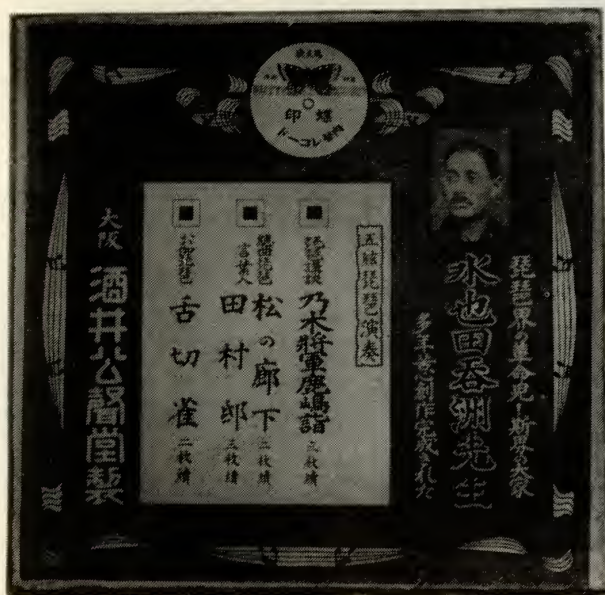 蝶印
内外レコード
琵琶界の革命児!斯界の大家
水也田呑洲先生
多年苦心創作完成された
五絃琵琶演奏
琵琶講談 乃木將軍鹿嶋詣 三枚續
松の廊下 二枚續
田村邸 三枚續
お伽琵琶 舌切雀 二枚續
大阪 酒井公聲堂製